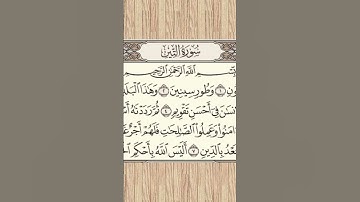 سُورَةُ التِّينِ
بِسْمِ اللَّهِ الرَّحْمَٰنِ الرَّحِيمِ
وَطُورِ سِينِينَ ٢ وَهَٰذَا الْبَلَدِ
فِي أَحْسَنِ تَقْوِيمٍ ٤ ثُمَّ رَدَدْنَٰهُ
وَعَمِلُوا الصَّٰلِحَٰتِ فَلَهُمْ أَجْرٌ
بَعْدُ بِالدِّينِ ٧ أَلَيْسَ اللَّهُ بِأَحْكَمِ